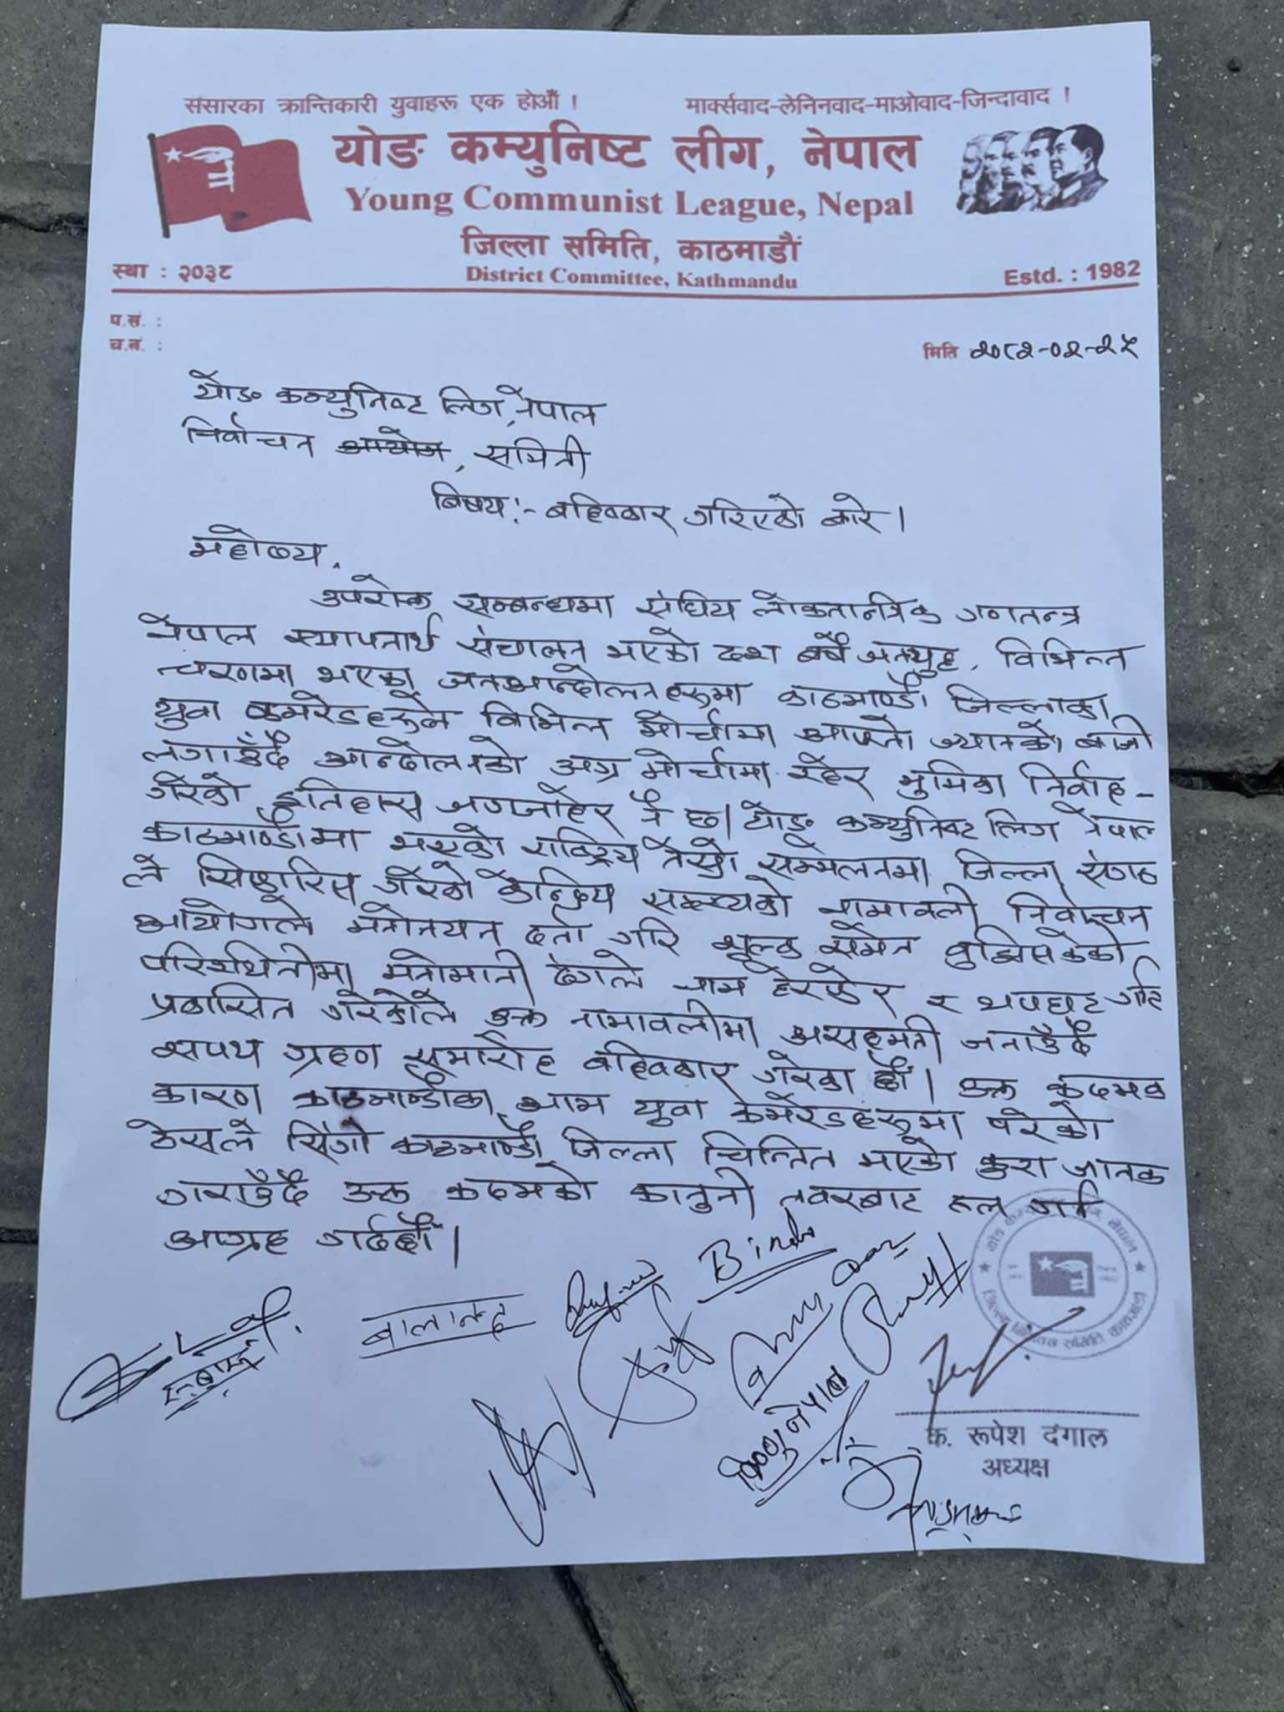 संसारका क्रान्तिकारी युवाहरू एक होऔं ! मार्क्सवाद-लेनिनवाद-माओवाद-जिन्दावाद !
योङ कम्युनिष्ट लीग, नेपाल
Young Communist League, Nepal
जिल्ला समिति, काठमाडौं
स्था : २०३८ District Committee, Kathmandu Estd. : 1982
प.सं. :
च.नं. : मिति २०८२-०२-२५
योङ कम्युनिष्ट लिग, नेपाल
निर्वाचन आयोग, समिती
बिषय:- बहिष्कार गरिएको बारे।
महोदय,
उपरोक्त सम्बन्धमा संघिय लोकतान्त्रिक गणतन्त्र
नेपाल स्थापनार्थ संचालन भएको दश बर्षे जनयुद्ध, विभिन्न
चरणमा भएका जनआन्दोलनहरुमा काठमाण्डौ जिल्लाका
युवा कमरेडहरुले विभिन्न मोर्चामा आफ्नो ज्यानको बाजी
लगाउँदै आन्दोलनको अग्र मोर्चामा रहेर भुमिका निर्वाह-
गरेको इतिहास जगजाहेर नै छ। योङ कम्युनिष्ट लिग नेपाल
काठमाण्डौमा भएको राष्ट्रिय तेस्रो सम्मेलनमा जिल्ला संगठ
ले सिफारिस गरेको केन्द्रिय सदस्यको नामावली निर्वाचन
आयोगले मनोनयन दर्ता गरि शुल्क समेत बुझिसकेको
परिस्थितीमा मनोमानी ढंगले नाम हेरफेर र थपघट गरि
प्रकासित गरेकोले उक्त नामावलीमा असहमती जनाउँदै
सपथ ग्रहण समारोह बहिष्कार गरेका छौं। उक्त कदमक
कारण काठमाण्डौका आम युवा कमरेडहरुमा परेको
ठेसले सिंगो काठमाण्डौ जिल्ला चिन्तित भएको कुरा जानक
गराउँदै उक्त कदमको कानुनी तवरबाट हल गर्न
आग्रह गर्दछौं।
Bindu
बालानन्द
विष्णु नेपाल
क. रूपेश दंगाल
अध्यक्ष